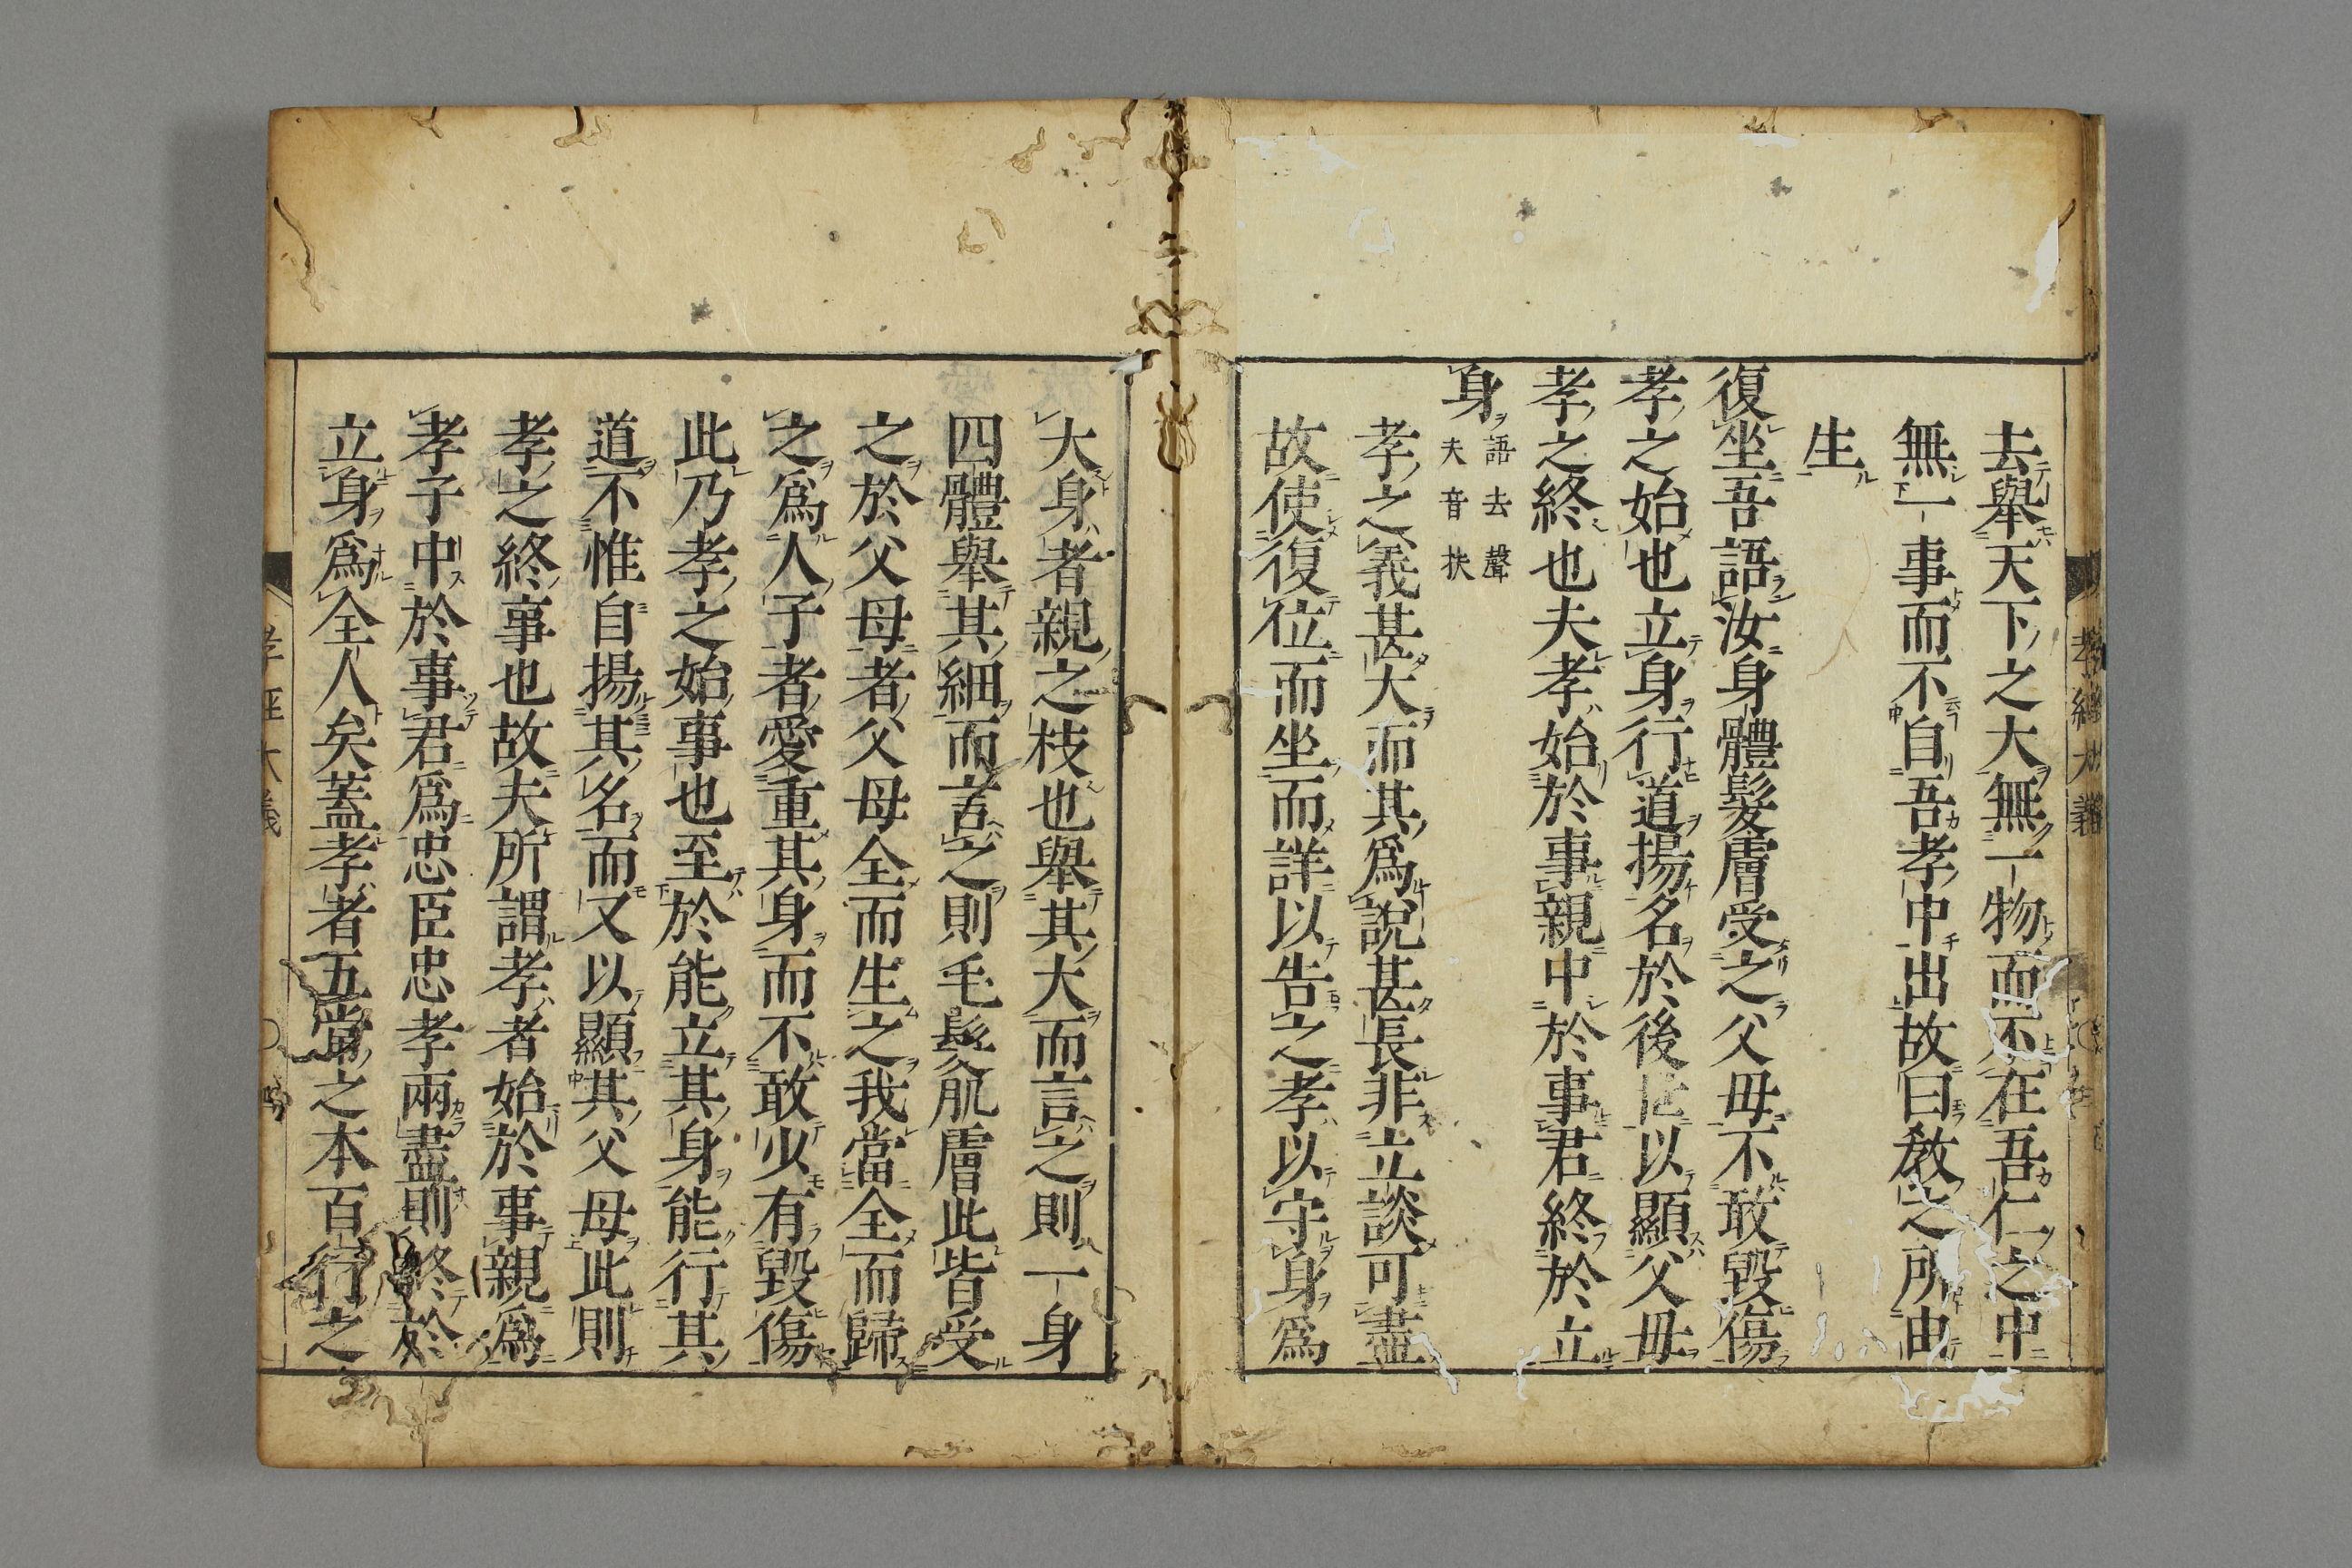 去舉天下之大無一物而不在吾仁之中
無一事而不自吾孝中出故曰敎之所由
生
復坐吾語汝身體髮膚受之父母不敢毀傷
孝之始也立身行道揚名於後世以顯父母
孝之終也夫孝始於事親中於事君終於立
身
語去聲
夫音扶
孝之義甚大而其爲說甚長非立談可盡
故使復位而坐而詳以告之孝以守身爲
大身者親之枝也舉其大而言之則一身
四體舉其細而言之則毛髮肌膚此皆受
之於父母者父母全而生之我當全而歸
之爲人子者愛重其身而不敢少有毀傷
此乃孝之始事也至於能立其身能行其
道不惟自揚其名而又以顯其父母此則
孝之終事也故夫所謂孝者始於事親爲
孝子中於事君爲忠臣忠孝兩盡則終於
立身爲全人矣蓋孝者五常之本百行之
孝經大義